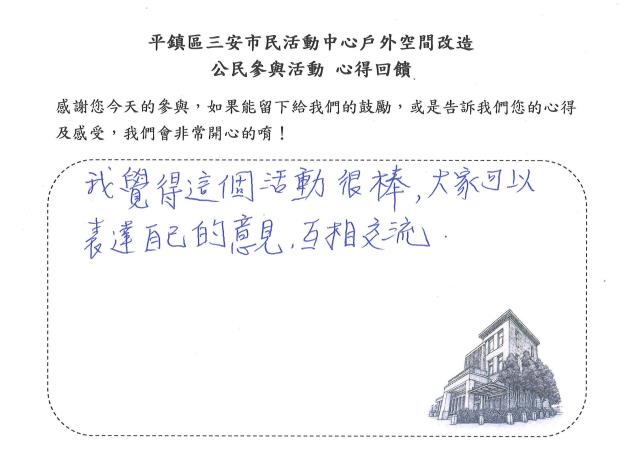 平鎮區三安市民活動中心戶外空間改造
公民參與活動 心得回饋
感謝您今天的參與，如果能留下給我們的鼓勵，或是告訴我們您的心得
及感受，我們會非常開心的唷！
我覺得這個活動很棒,大家可以
表達自己的意見.互相交流.